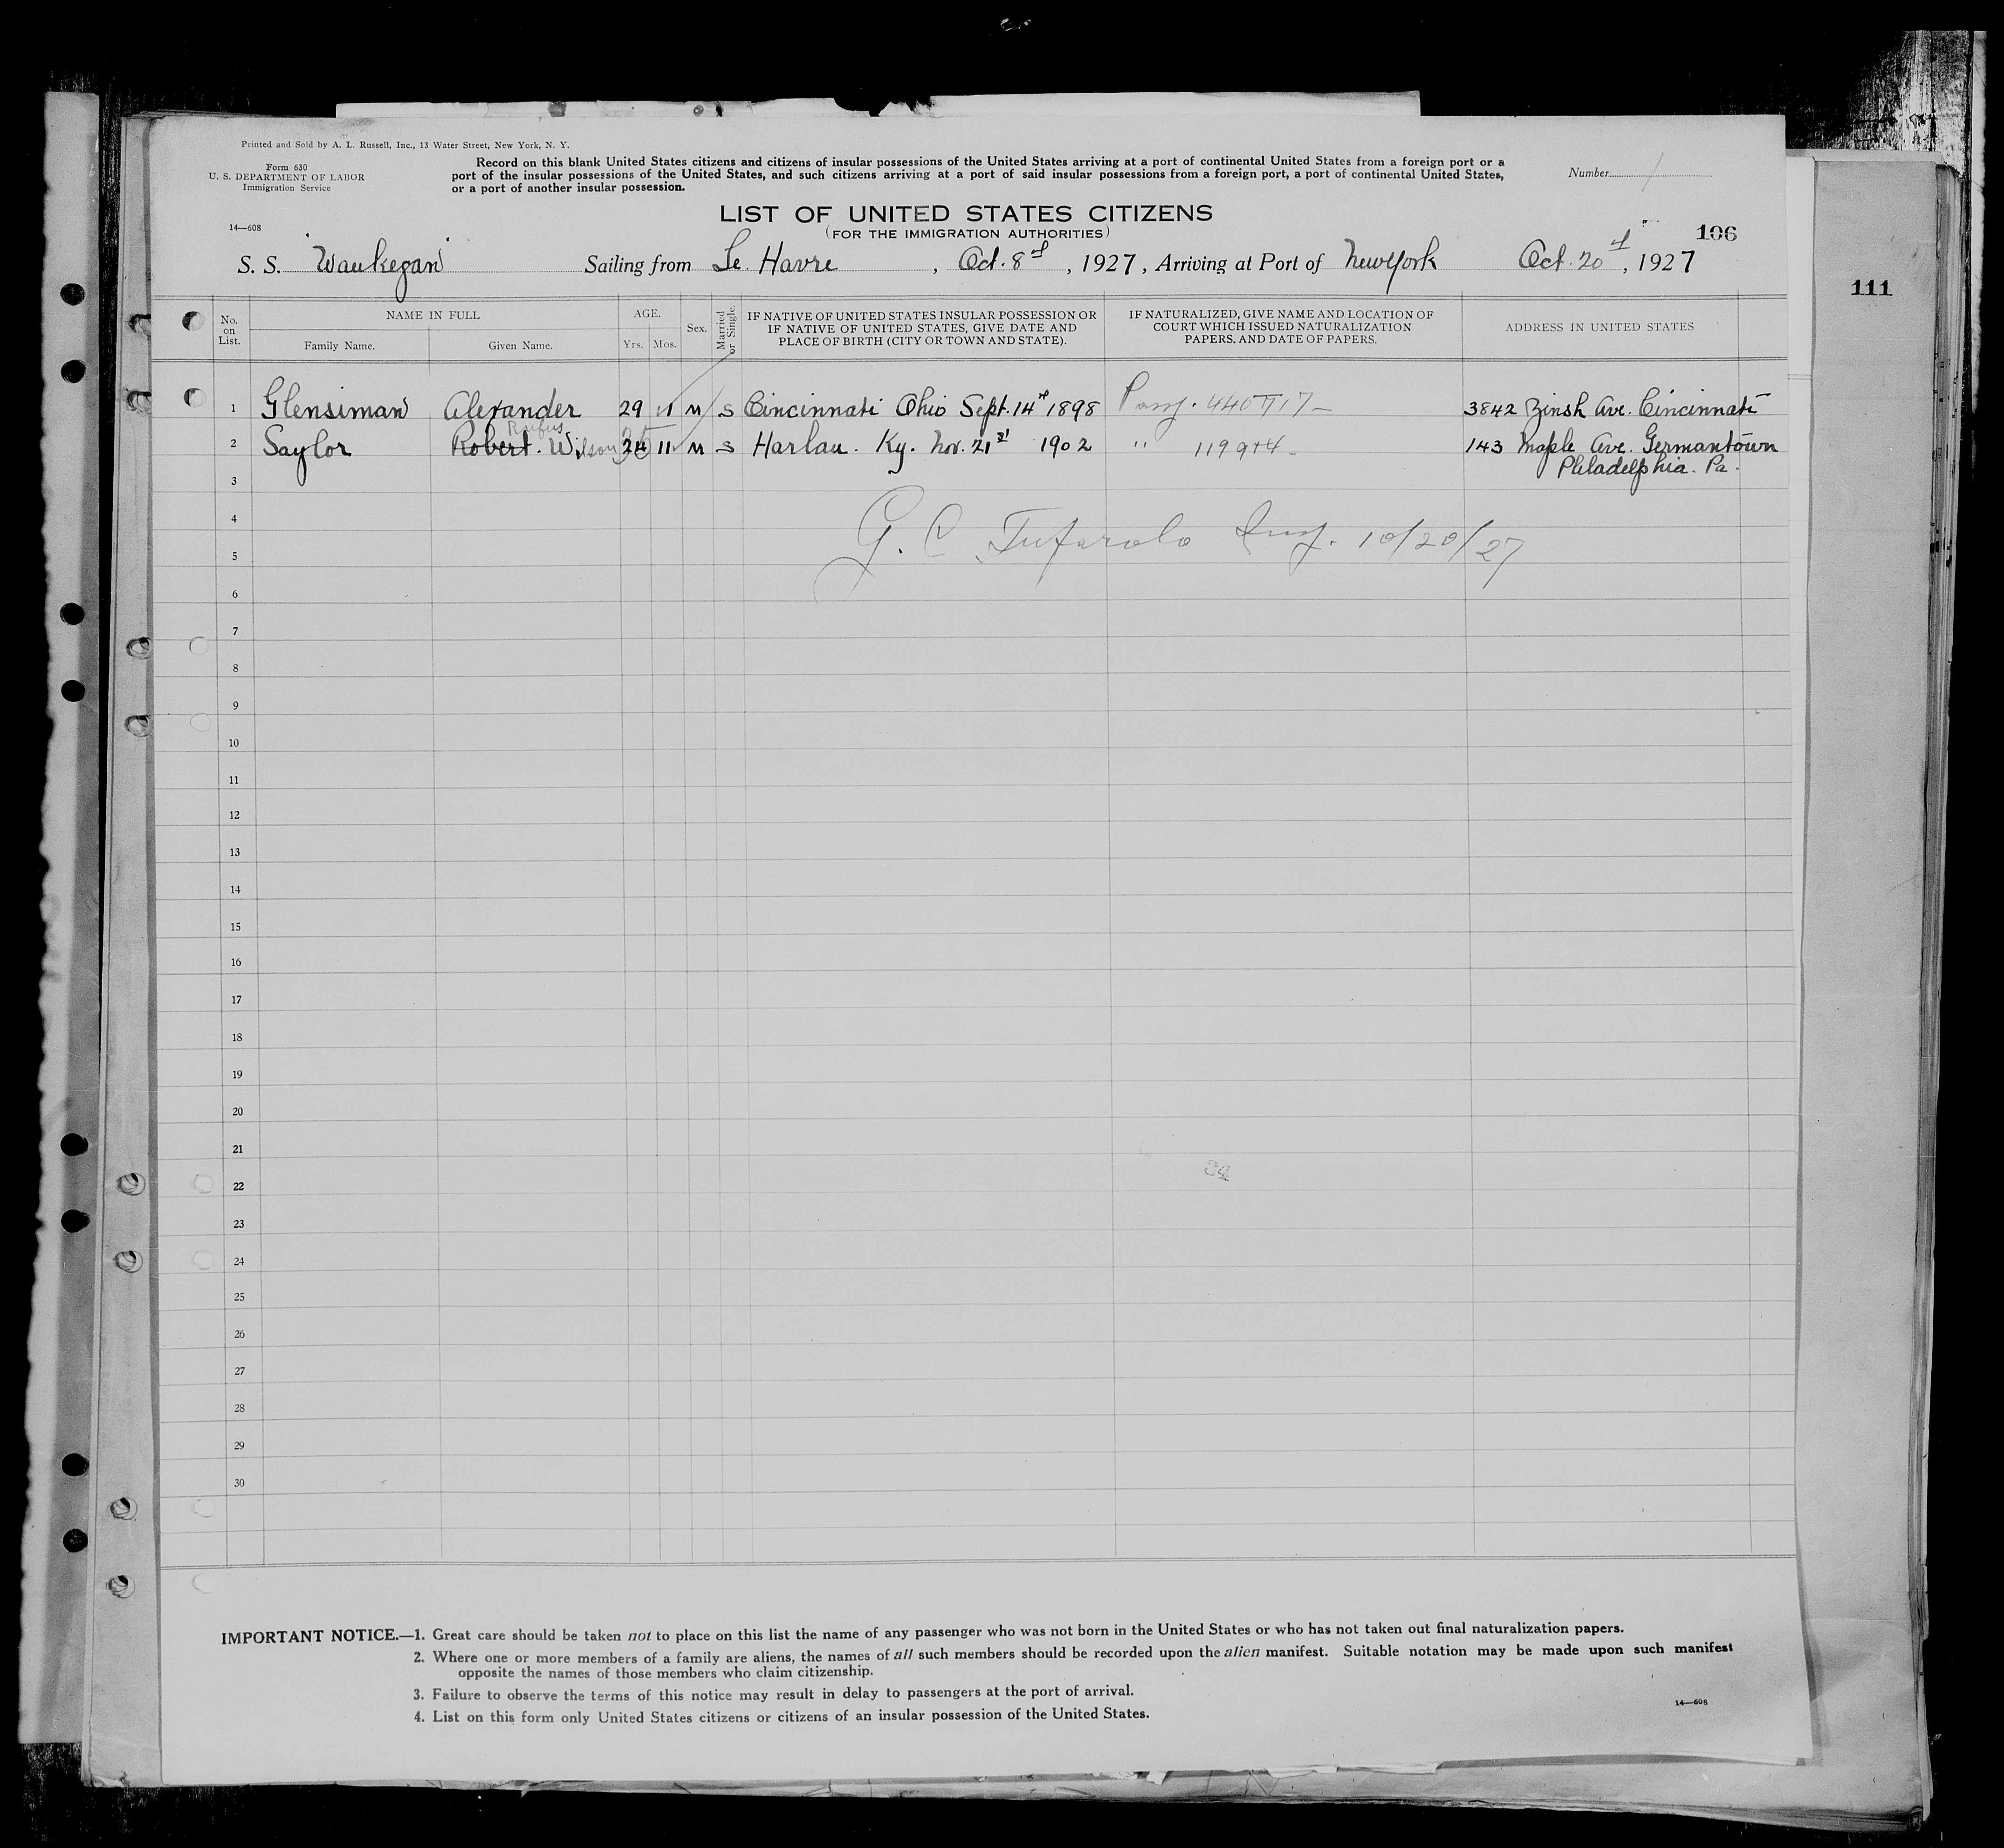 Printed and Sold by A. L. Russell, Inc., 13 Water Street, New York, N. Y.
Form 630
U. S. DEPARTMENT OF LABOR
Immigration Service
Record on this blank United States citizens and citizens of insular possessions of the United States arriving at a port of continental United States from a foreign port or a
port of the insular possessions of the United States, and such citizens arriving at a port of said insular possessions from a foreign port, a port of continental United States,
or a port of another insular possession.
Number
LIST OF UNITED STATES CITIZENS
(FOR THE IMMIGRATION AUTHORITIES)
14—608
106
S. S. "Waukegan" Sailing from Le Havre, Oct. 8th, 1927, Arriving at Port of New York Oct. 20th, 1927
111
No. on List.
NAME IN FULL
Family Name. Given Name.
AGE.
Yrs. Mos.
Sex.
Married or Single.
IF NATIVE OF UNITED STATES INSULAR POSSESSION OR
IF NATIVE OF UNITED STATES, GIVE DATE AND
PLACE OF BIRTH (CITY OR TOWN AND STATE).
IF NATURALIZED, GIVE NAME AND LOCATION OF
COURT WHICH ISSUED NATURALIZATION
PAPERS, AND DATE OF PAPERS.
ADDRESS IN UNITED STATES
1 Glensiman Alexander 29 M S Cincinnati Ohio Sept. 14th 1898 3842 Zinsh Ave. Cincinnati
Rufus
2 Saylor Robert. Wilson 24 11 M S Harlan. Ky. Nov. 21st 1902 " 143 Maple Ave. Germantown
Philadelphia. Pa.
3
4
G. C. Tufarolo Insp. 10/20/27
5
6
7
8
9
10
11
12
13
14
15
16
17
18
19
20
21
22
23
24
25
26
27
28
29
30
IMPORTANT NOTICE.—1. Great care should be taken not to place on this list the name of any passenger who was not born in the United States or who has not taken out final naturalization papers.
2. Where one or more members of a family are aliens, the names of all such members should be recorded upon the alien manifest. Suitable notation may be made upon such manifest
opposite the names of those members who claim citizenship.
3. Failure to observe the terms of this notice may result in delay to passengers at the port of arrival.
4. List on this form only United States citizens or citizens of an insular possession of the United States.
14—608